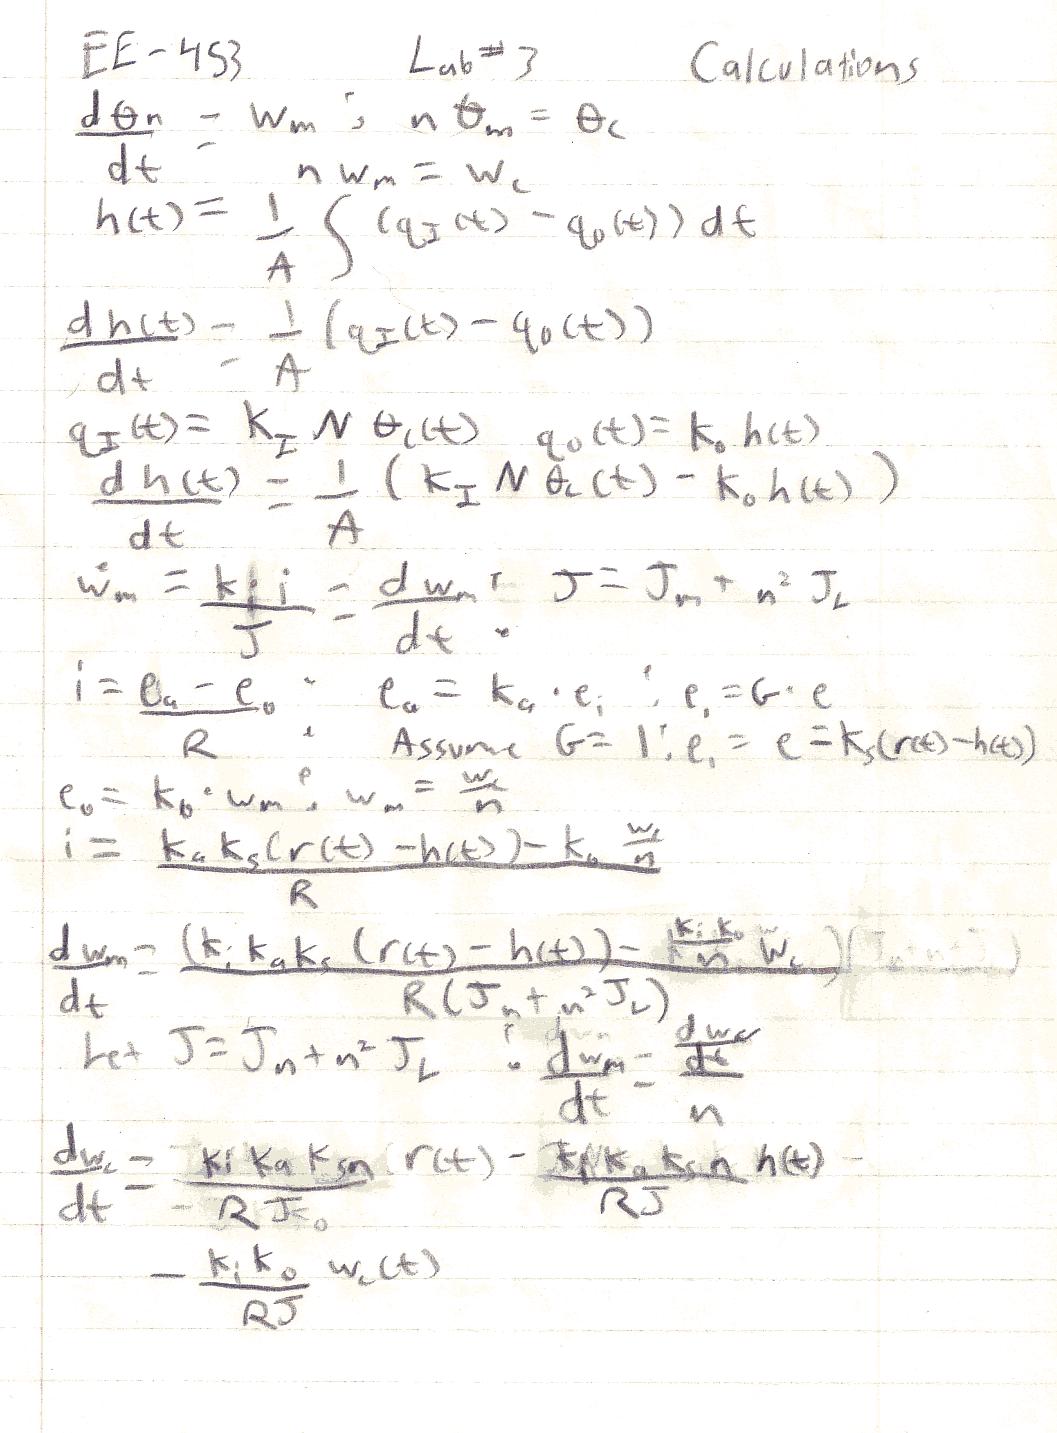 EE-453 Lab #3 Calculations
dθn/dt = wm ; n θm = θc
n wm = wc
h(t) = 1/A ∫ (qI(t) - qo(t)) dt
dh(t)/dt = 1/A (qI(t) - qo(t))
qI(t) = KI N θc(t) qo(t) = Ko h(t)
dh(t)/dt = 1/A (KI N θc(t) - Ko h(t))
ẇm = ki i/J = dwm/dt ; J = Jm + n² JL
i = (ea - eb)/R ; ea = Ka · ei ; ei = G · e
Assume G = 1 ; ei = e = Ks(r(t) - h(t))
eb = Kb · wm ; wm = wc/n
i = (Ka Ks(r(t) - h(t)) - Kb wc/n)/R
dwm/dt = (Ki Ka Ks (r(t) - h(t)) - Ki Kb/n wc)/R(Jm + n² JL)
Let J = Jm + n² JL ; dwm/dt = (dwc/dt)/n
dwc/dt = Ki Ka Ks n/RJ r(t) - Ki Ka Ks n/RJ h(t) -
- Ki Kb/RJ wc(t)